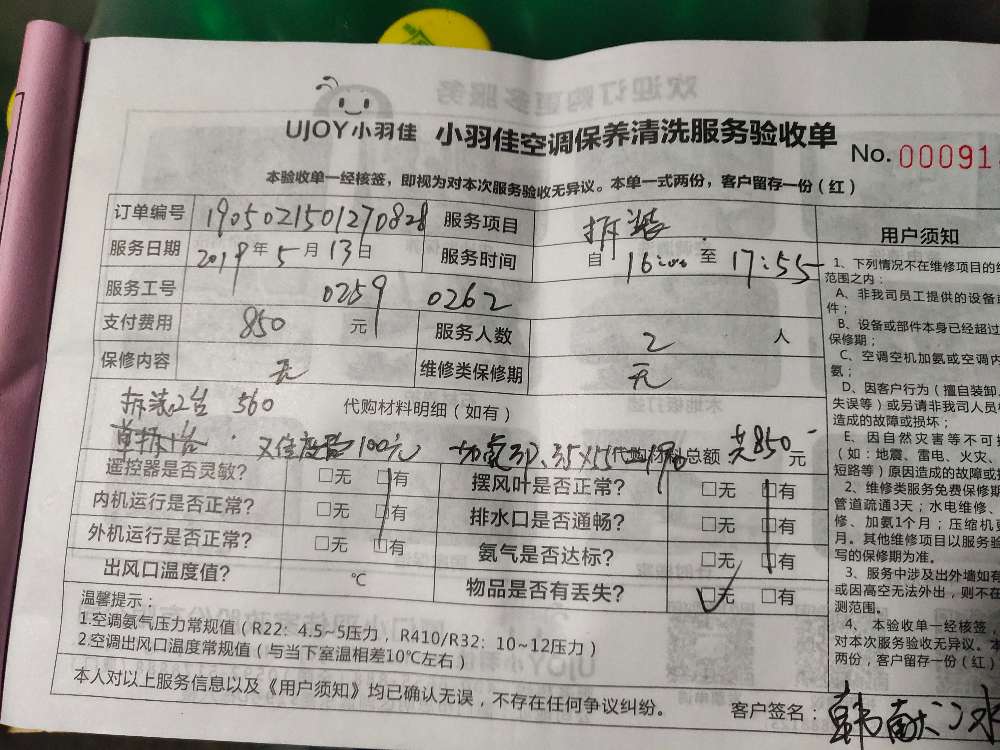 UJOY小羽佳 小羽佳空调保养清洗服务验收单
No. 00091
本验收单一经核签，即视为对本次服务验收无异议。本单一式两份，客户留存一份（红）
订单编号 1905021501270828 服务项目 拆装
服务日期 2019年5月13日 服务时间 自 16:00 至 17:55
服务工号 0259 0262
支付费用 850 元 服务人数 2 人
保修内容 无 维修类保修期 无
拆装2台 560 代购材料明细（如有）
单拆1台 100元 代购材料总额 共850元
遥控器是否灵敏？ □无 □有 摆风叶是否正常？ □无 □有
内机运行是否正常？ □无 □有 排水口是否通畅？ □无 □有
外机运行是否正常？ □无 □有 氨气是否达标？ □无 □有
出风口温度值？ ℃ 物品是否有丢失？ □无 □有
温馨提示：
1.空调氨气压力常规值（R22：4.5~5压力，R410/R32：10~12压力）
2.空调出风口温度常规值（与当下室温相差10℃左右）
本人对以上服务信息以及《用户须知》均已确认无误，不存在任何争议纠纷。
客户签名：韩献冰
用户须知
1、下列情况不在维修项目的
范围之内：
A、非我司员工提供的设备
件；
B、设备或部件本身已经超过
保修期；
C、空调空机加氨或空调内
氨；
D、因客户行为（擅自装卸
失误等）或另请非我司人员
造成的故障或损坏；
E、因自然灾害等不可
（如：地震、雷电、火灾、
短路等）原因造成的故障或
2、维修类服务免费保修期
管道疏通3天；水电维修、
修、加氨1个月；压缩机
月。其他维修项目以服务
写的保修期为准。
3、服务中涉及出外墙如有
或因高空无法外出，则不在
测范围。
4、本验收单一经核签，
对本次服务验收无异议。本
两份，客户留存一份（红）